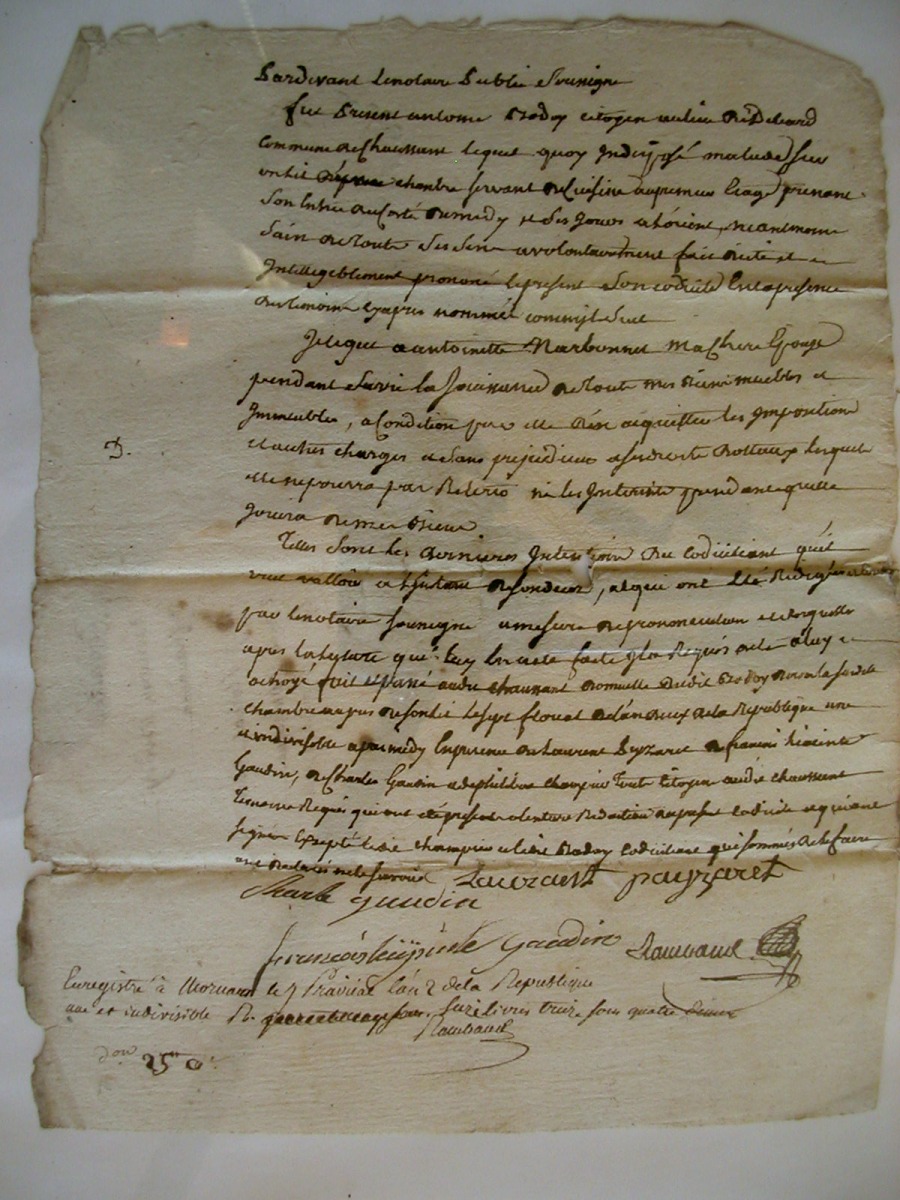 Pardevant le notaire Public Soussigné
fut Présent antoine Bador citoyen du lieu de
commune de Chaussant lequel quoy Indisposé malade sur
un lit chambre servant de Cuisine au premier Etage prenant
Son Entrée du Coté de midy et Ses Jours a l'orient, neantmoins
Sain de toute Ses Sens a volontairement fait dicté et
Intelligeblement prononcé le present Son codicile En la presence
des temoins Cy apres nommés comm'il Suit
Je legue a antoinette Narbonnet ma Chere Epouse
pendant Sa vie la Jouissance de toute mes Biens meubles et
Immeubles, a Condition par elle d'en aquitter les Imposition
et autres charges et Sans prejudice a ses droits dottaux lesquels
elle ne pourra par Repeter ni les Interrets pendant qu'elle
Jouira de mes Biens
D.
Telles Sont les dernieres Intention du Codicillant qu'il
veut valloir a forme de , et qui ont été Redigées
par le notaire Soussigné a mesure de prononciation et desquelles
apres lecture que luy En a été faite Il a Requis acte a luy
octroyé fait et passé audit Chaussant domicille dudit Bador dans la Susdite
chambre le Sept floreal de l'an deux de la Republique une
et indivisible apres midy En presence de Laurent Peyzaret de francois hiacinte
Gaudin, de Charles Gaudin et de champin tous Citoyen dudit Chaussant
Temoins Requis qui ont été present a l'entiere Redaction du present Codicile et qui ont
Signé Excepté ledit champin et ledit Bador Codicillant qui sommés de le faire
ont declaré ne le Scavoir Lauranst payzaret
Charle gaudin
francois hiypinte Gaudin Raimbaud
Enregistré à Mornant le 7 Prairial l'an 2 de la Republique
une et indivisible R. livres treize sous quatre denier
Raimbaud
25